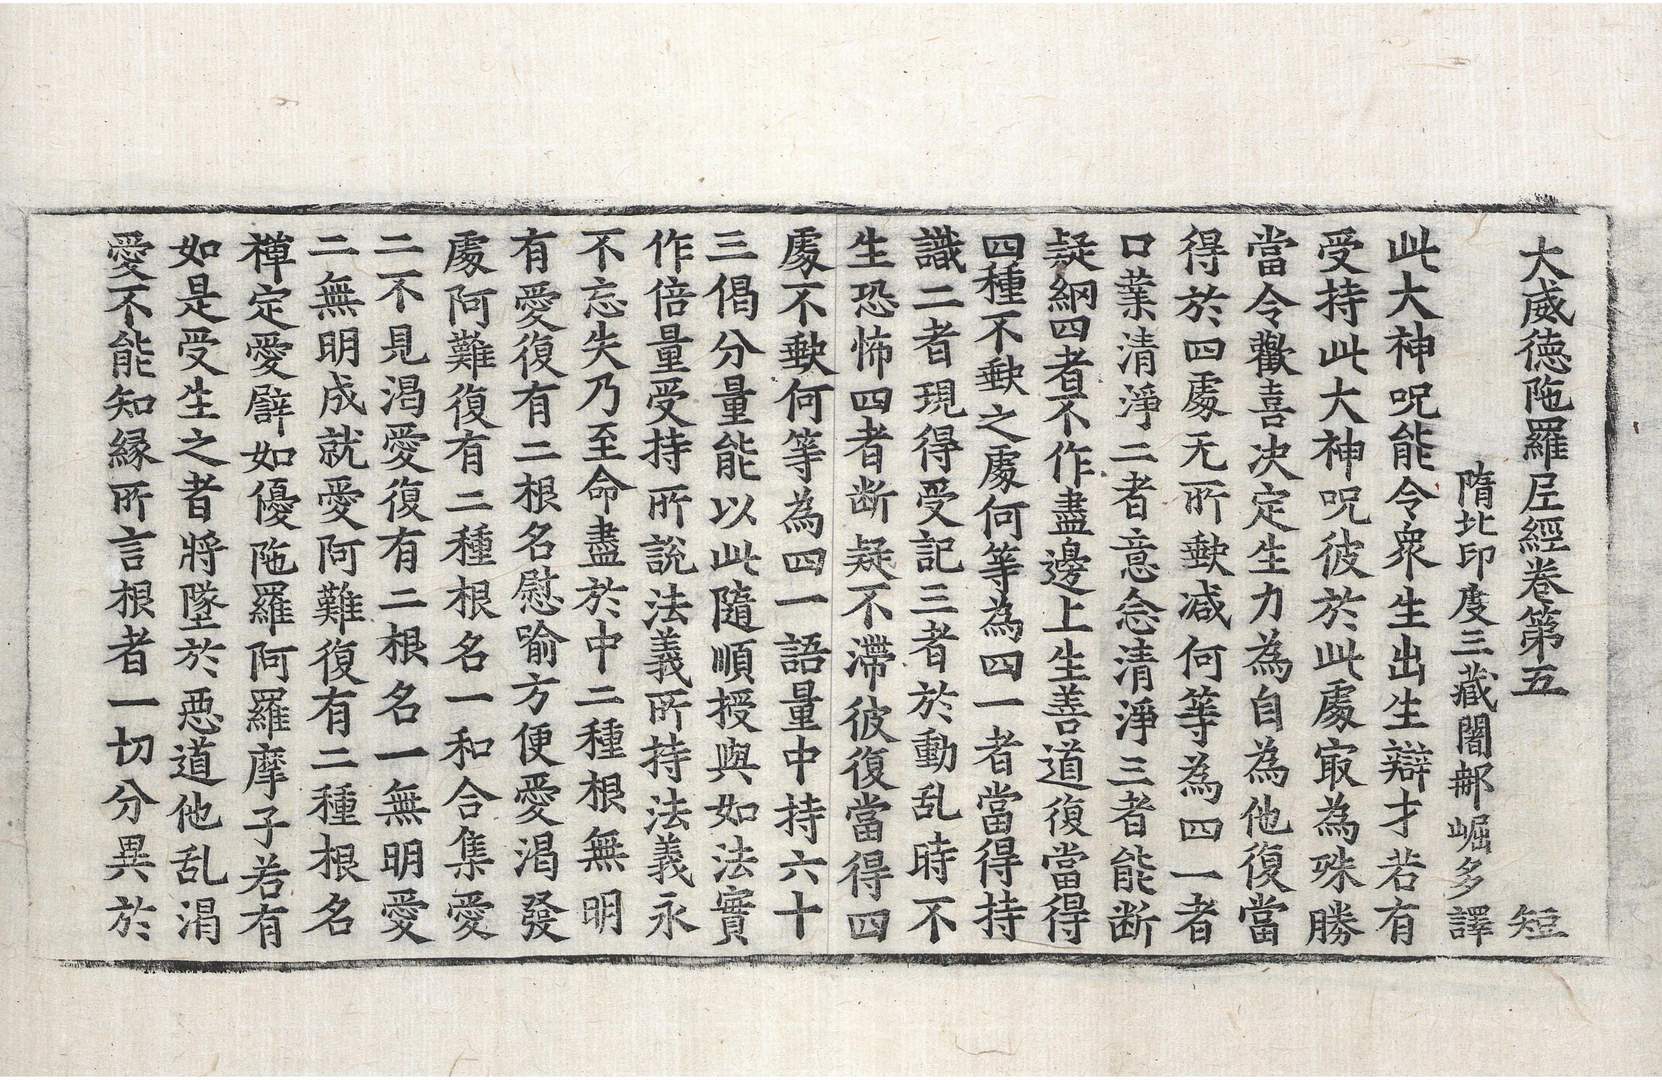 大威德陁羅尼經卷第五 短
隋北印度三藏闍那崛多譯
此大神呪能令衆生出生辯才若有
受持此大神呪彼於此處㝡為殊勝
當令歡喜决定生力為自為他復當
得於四處无所歉减何等為四一者
口業清淨二者意念清淨三者能断
疑網四者不作盡邊上生善道復當得
四種不歉之處何等為四一者當得持
識二者現得受記三者於動乱時不
生恐怖四者断疑不滯彼復當得四
處不歉何等為四一語量中持六十
三偈分量能以此隨順授與如法實
作倍量受持所說法義所持法義永
不忘失乃至命盡於中二種根無明
有愛復有二根名慰喻方便愛渴發
處阿難復有二種根名一和合集愛
二不見渴愛復有二根名一無明愛
二無明成就愛阿難復有二種根名
禪定愛譬如優陁羅阿羅摩子若有
如是受生之者將墜於惡道他乱渴
愛不能知縁所言根者一切分異於